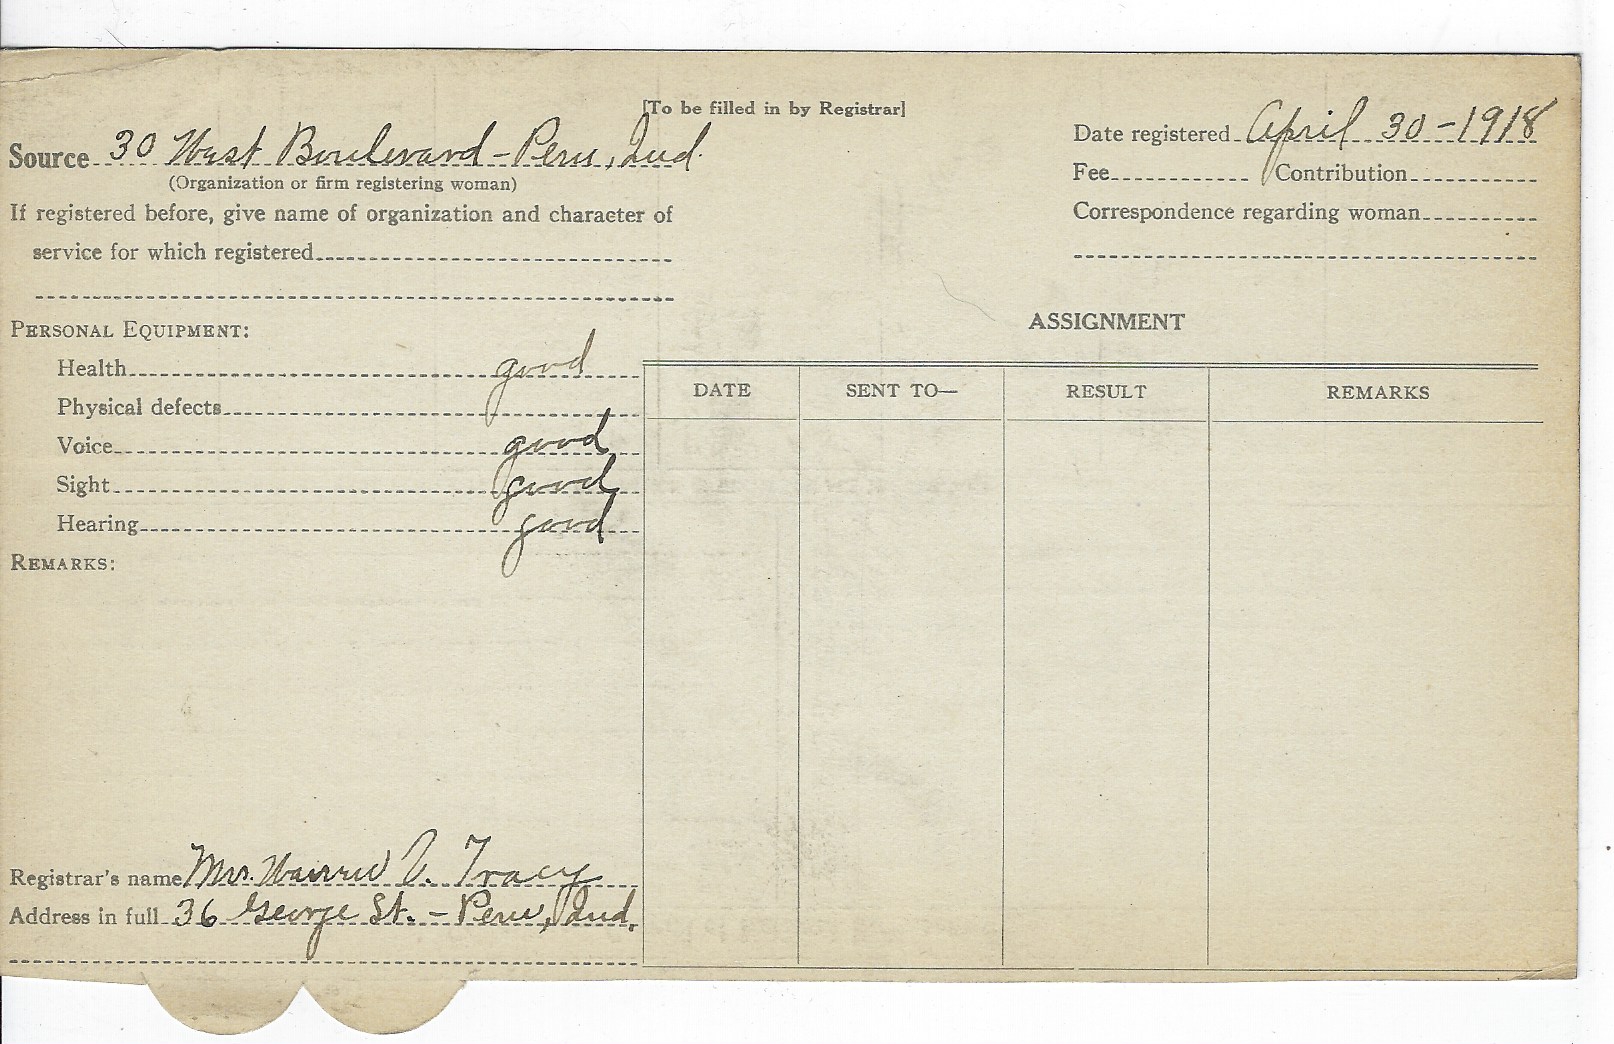 [To be filled in by Registrar]
Source 30 West Boulevard - Peru, Ind.
(Organization or firm registering woman)
If registered before, give name of organization and character of
service for which registered
Date registered April 30 - 1918
Fee Contribution
Correspondence regarding woman
PERSONAL EQUIPMENT:
Health good
Physical defects
Voice good
Sight good
Hearing good
REMARKS:
ASSIGNMENT
DATE SENT TO— RESULT REMARKS
Registrar's name Mrs. Tracy
Address in full 36 George St. - Peru, Ind.